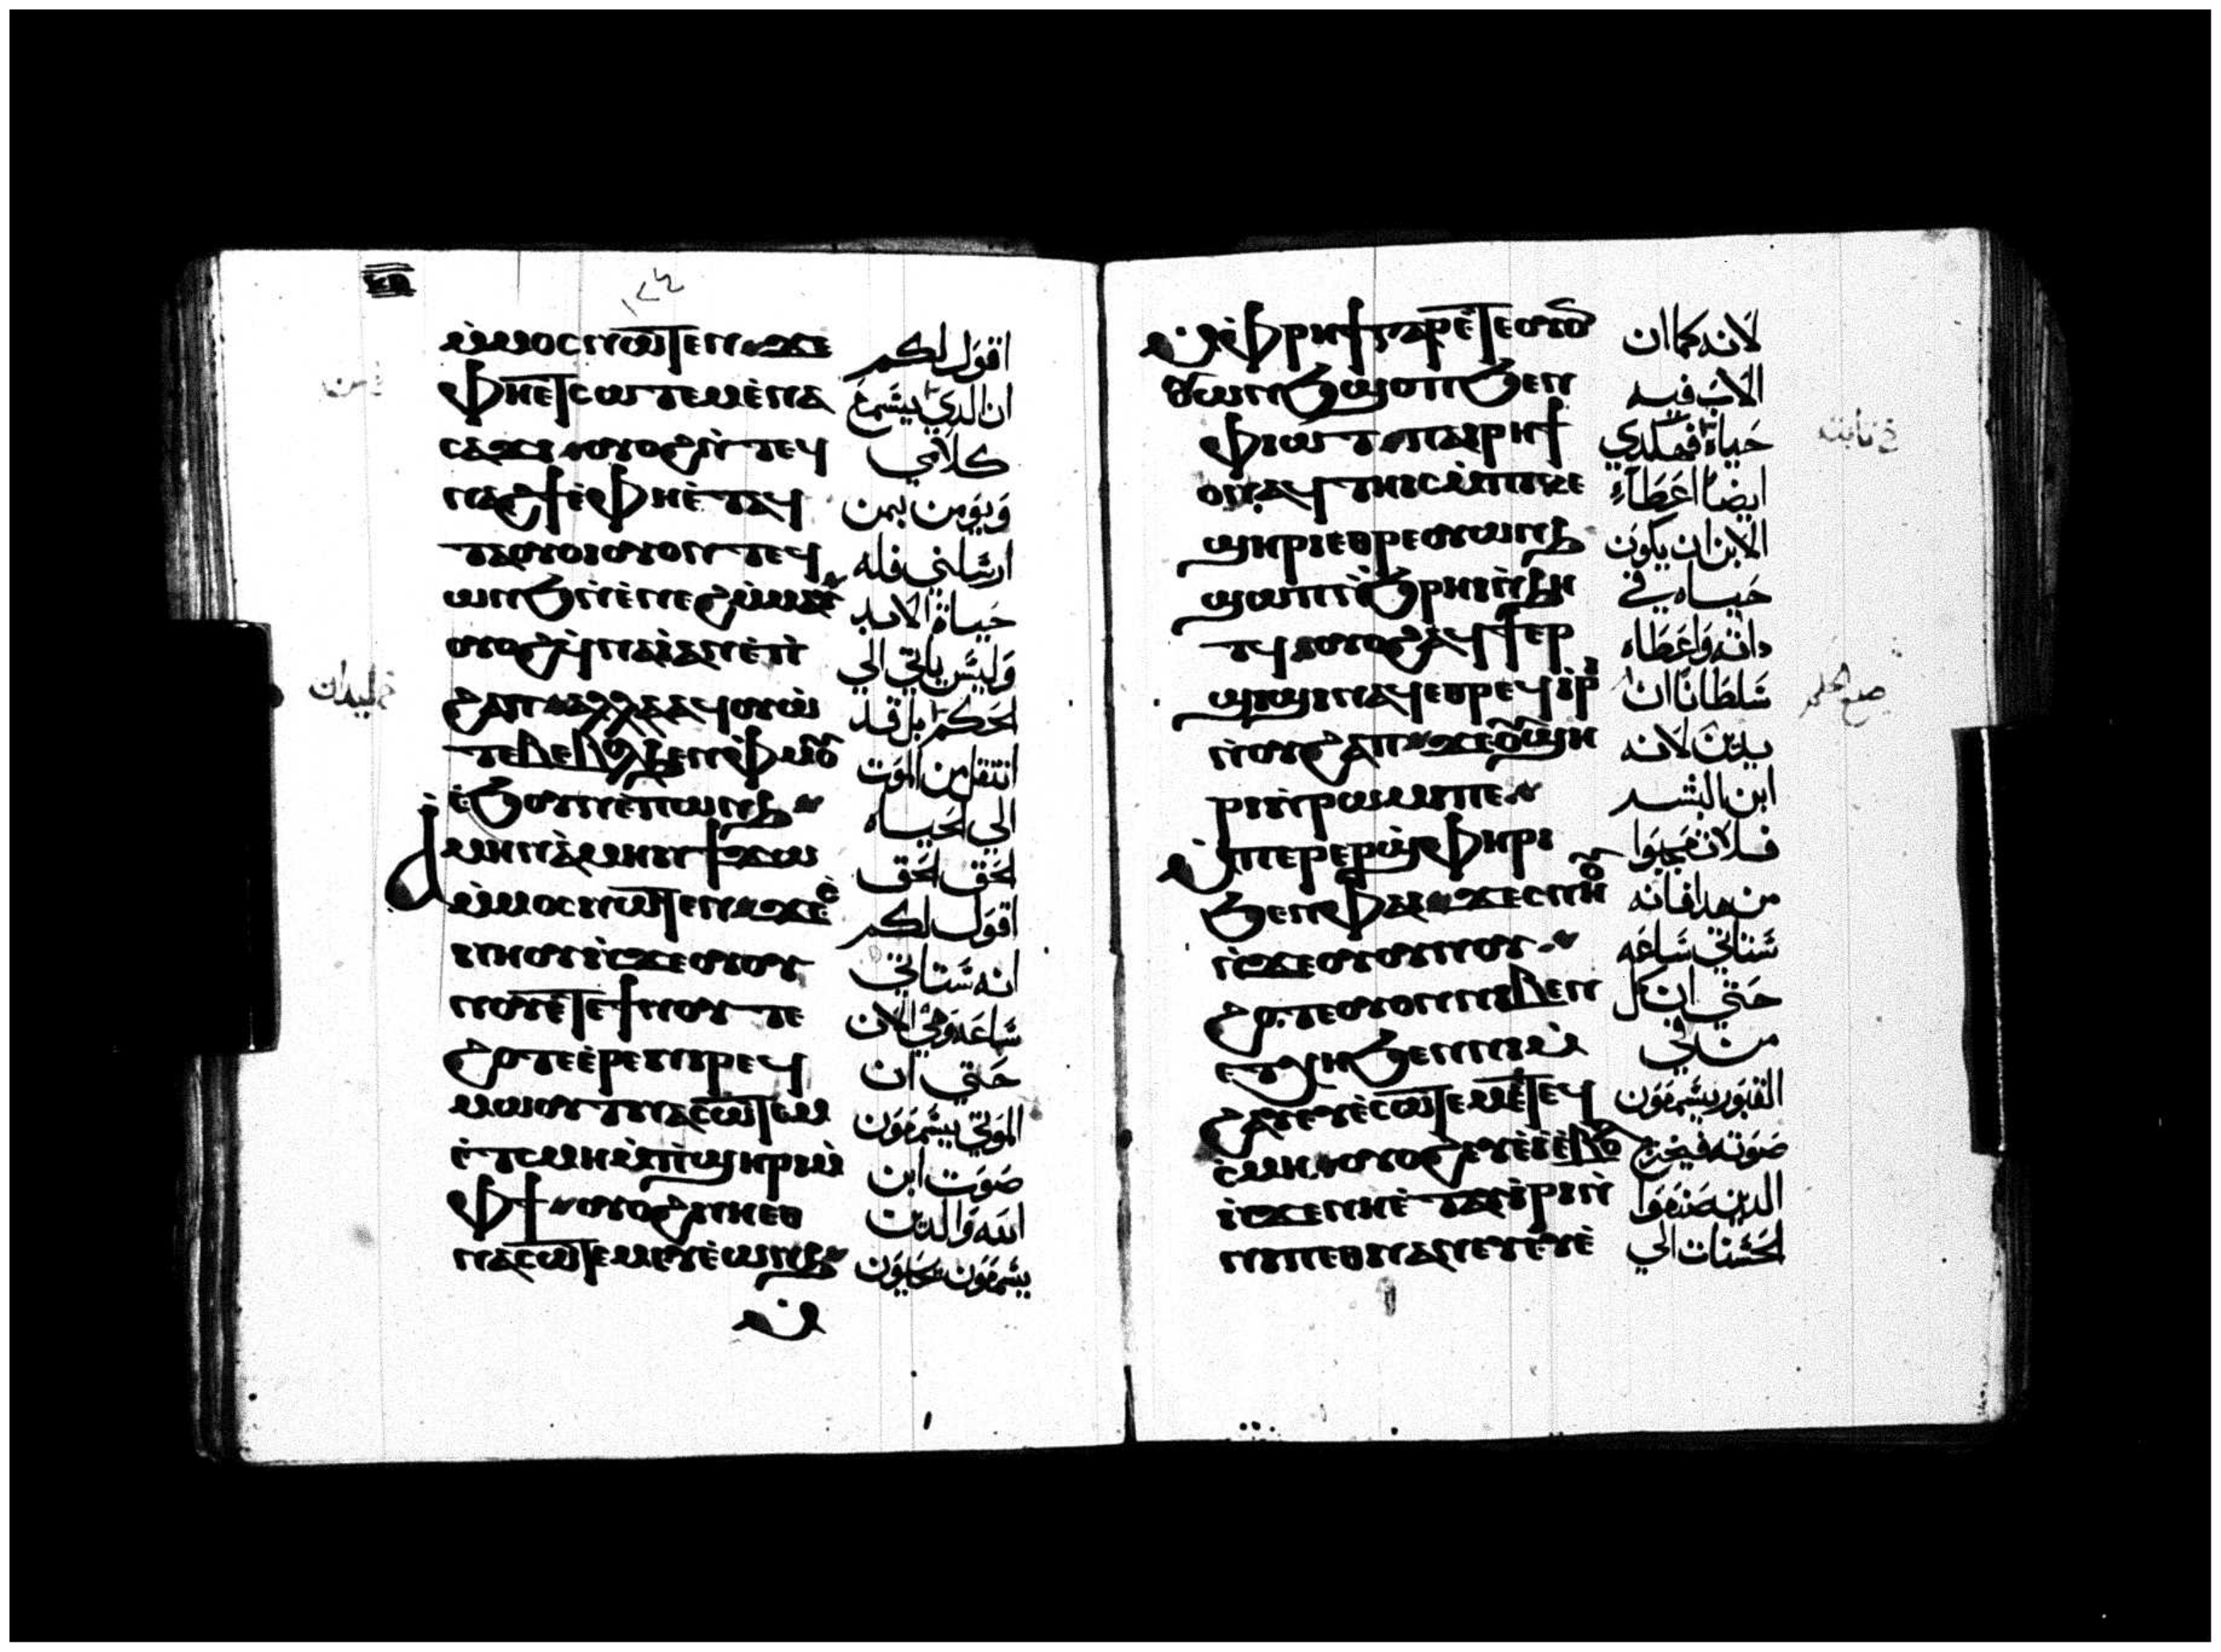 ⲙ̀ⲙⲟⲥ ⲛⲱⲧⲉⲛ ϫⲉ اقول لكم
ⲫⲏⲉⲧⲥⲱⲧⲉⲙ ⲉ̀ⲡⲁ ان الدي يسمع
ⲥⲁϫⲓ ⲟⲩⲟϩ ⲛ̀ⲧⲉϥ كلامي
ⲛⲁϩϯ ⲉ̀ⲫⲏⲉ̀ⲧⲁϥ ويومن بمن
ⲧⲁⲟⲩⲟⲓ ⲟⲩⲟⲛⲧⲉϥ ارسلني فله
ⲱⲛϧ ⲛ̀ⲉ̀ⲛⲉϩ ⲙ̀ⲙⲁⲩ حياة الابد
ⲟⲩⲟϩ ϥ̀ⲛⲁⲓ̀ ⲁⲛ ⲉ̀ⲡ̀ وليس ياتي الي
ϩⲁⲡ ⲁⲗⲗⲁ ⲁϥⲟⲩⲱ̀ الحكم بل قد
ⲧⲉⲃ ⲉⲃⲟⲗ ϧⲉⲛ ⲫ̀ⲙⲟⲩ انتقل من الموت
ⲉ̀ϧⲟⲩⲛ ⲉ̀ⲡⲱⲛϧ الي الحياه
ⲁ̀ⲙⲏⲛ ⲁ̀ⲙⲏⲛ ϯϫⲱ الحق الحق
ⲙ̀ⲙⲟⲥ ⲛⲱⲧⲉⲛ ϫⲉ ⲥ̀ اقول لكم
ⲛⲏⲟⲩ ⲛ̀ϫⲉ ⲟⲩⲟⲩ انه ستاتي
ⲛⲟⲩ ⲉ̀ⲧⲉ ϯⲛⲟⲩ ⲧⲉ ساعه وهي الان
ϩⲟⲧⲉ ⲉ̀ⲣⲉ ⲛⲓⲣⲉϥ حتي ان
ⲙⲱⲟⲩⲧ ⲛⲁⲥⲱⲧⲉⲙ الموتي يسمعون
ⲉ̀ⲧⲥⲙⲏ ⲙ̀ⲡ̀ϣⲏⲣⲓ ⲙ̀ صوت ابن
ⲫϯ ⲟⲩⲟϩ ⲛⲏⲉⲑ الله والدين
ⲛⲁⲥⲱⲧⲉⲙ ⲉⲩⲉ̀ⲱⲛϧ يسمعون يحيون
ⲙ̀ⲫⲣⲏϯ ⲅⲁⲣ ⲉ̀ⲧⲉ ⲟⲩⲟⲛ لانه كما ان
ⲱⲛϧ ϣⲟⲡ ϧⲉⲛ الاب فيه
ⲫⲓⲱⲧ ⲡⲁⲓⲣⲏϯ حياة فهكدي
ⲟⲛ ⲁϥⲧⲏⲓⲥ ⲙ̀ⲡⲓⲕⲉ ايضا اعطاء
ϣⲏⲣⲓ ⲉⲑⲣⲉ ⲟⲩⲱⲛϧ الابن ان يكون
ϣⲱⲡⲓ ⲛ̀ϧⲣⲏⲓ ⲛ̀ϧⲏ حياه في
ⲧϥ ⲟⲩⲟϩ ⲁϥϯ ⲉⲣ داته واعطاه
ϣⲓϣⲓ ⲛⲁϥ ⲉⲑⲣⲉϥⲓ̀ⲣⲓ سلطانا ان
ⲛ̀ⲟⲩϩⲁⲡ ϫⲉ ⲟⲩϣⲏ يدين لانه
ⲣⲓ ⲛ̀ⲣⲱⲙⲓ ⲡⲉ ابن البشر
ⲙ̀ⲡⲉⲣⲉⲣϣⲫⲏⲣⲓ فلا تعجبوا
ϧⲉⲛ ⲫⲁⲓ ϫⲉ ⲥⲛⲏⲟⲩ من هدا فانه
ⲛ̀ϫⲉ ⲟⲩⲟⲩⲛⲟⲩ ستاتي ساعه
ϩⲟⲧⲉ ⲟⲩⲟⲛ ⲛⲓⲃⲉⲛ حتي ان كل
ⲉⲧⲭⲏ ϧⲉⲛ ⲛⲓⲙ̀ من في
ϩⲁⲩ ⲉⲩⲉ̀ⲥⲱⲧⲉⲙ ⲉ̀ⲧⲉϥ القبور يسمعون
ⲥ̀ⲙⲏ ⲟⲩⲟϩ ⲉⲩⲉ̀ⲓ̀ ⲉ̀ⲃⲟⲗ صوته فيخرج
ⲛ̀ϫⲉ ⲛⲏⲉ̀ⲧⲁⲩⲓ̀ⲣⲓ ⲛ̀ الدين صنعوا
ⲛⲓⲡⲉⲑⲛⲁⲛⲉⲩ ⲉⲩⲉ̀ الحسنات الي